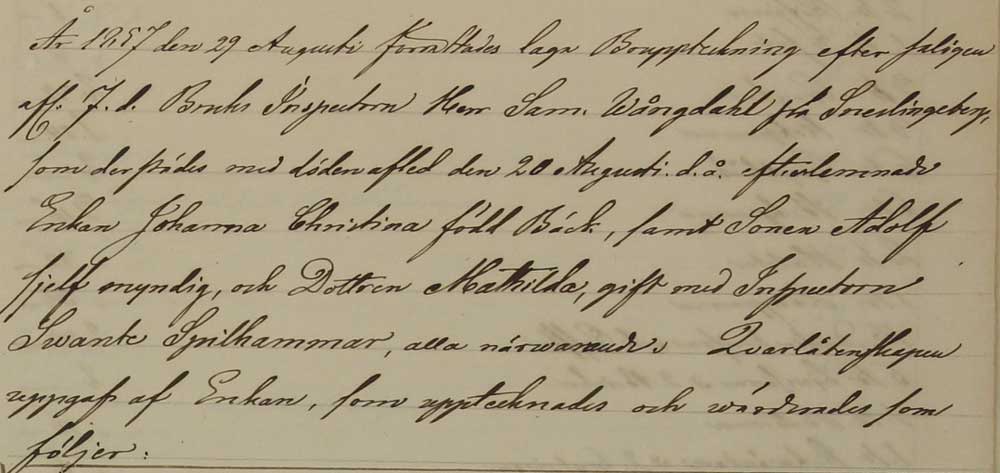 År 1857 den 29 Augusti förrättades laga Bouppteckning efter saligen
afl. F. d. Bruks Inspectorn Herr Sam. Wångdahl på Sneslingeberg,
som derstädes med döden afled den 20 Augusti d. å. efterlemnade
Enkan Johanna Christina född Bäck, samt Sonen Adolf
sjelf myndig, och Dottren Mathilda, gift med Inspectorn
Swante Spilhammar, alla närwarande. Qvarlåtenskapen
uppgafs af Enkan, som upptecknades och wärderades som
följer: